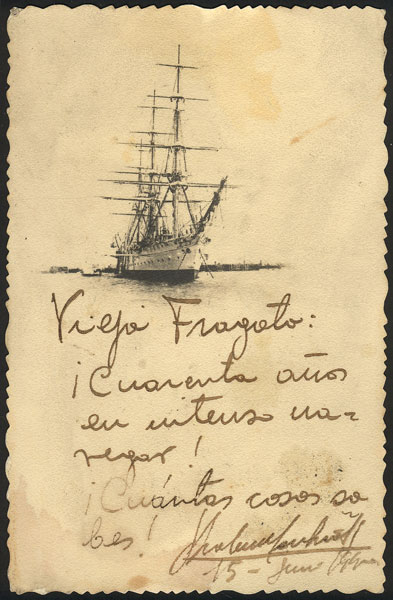 Vieja Fragata:
¡Cuarenta años
en intenso na-
vegar!
¡Cuántas cosas sa
bes!
15 - Junio